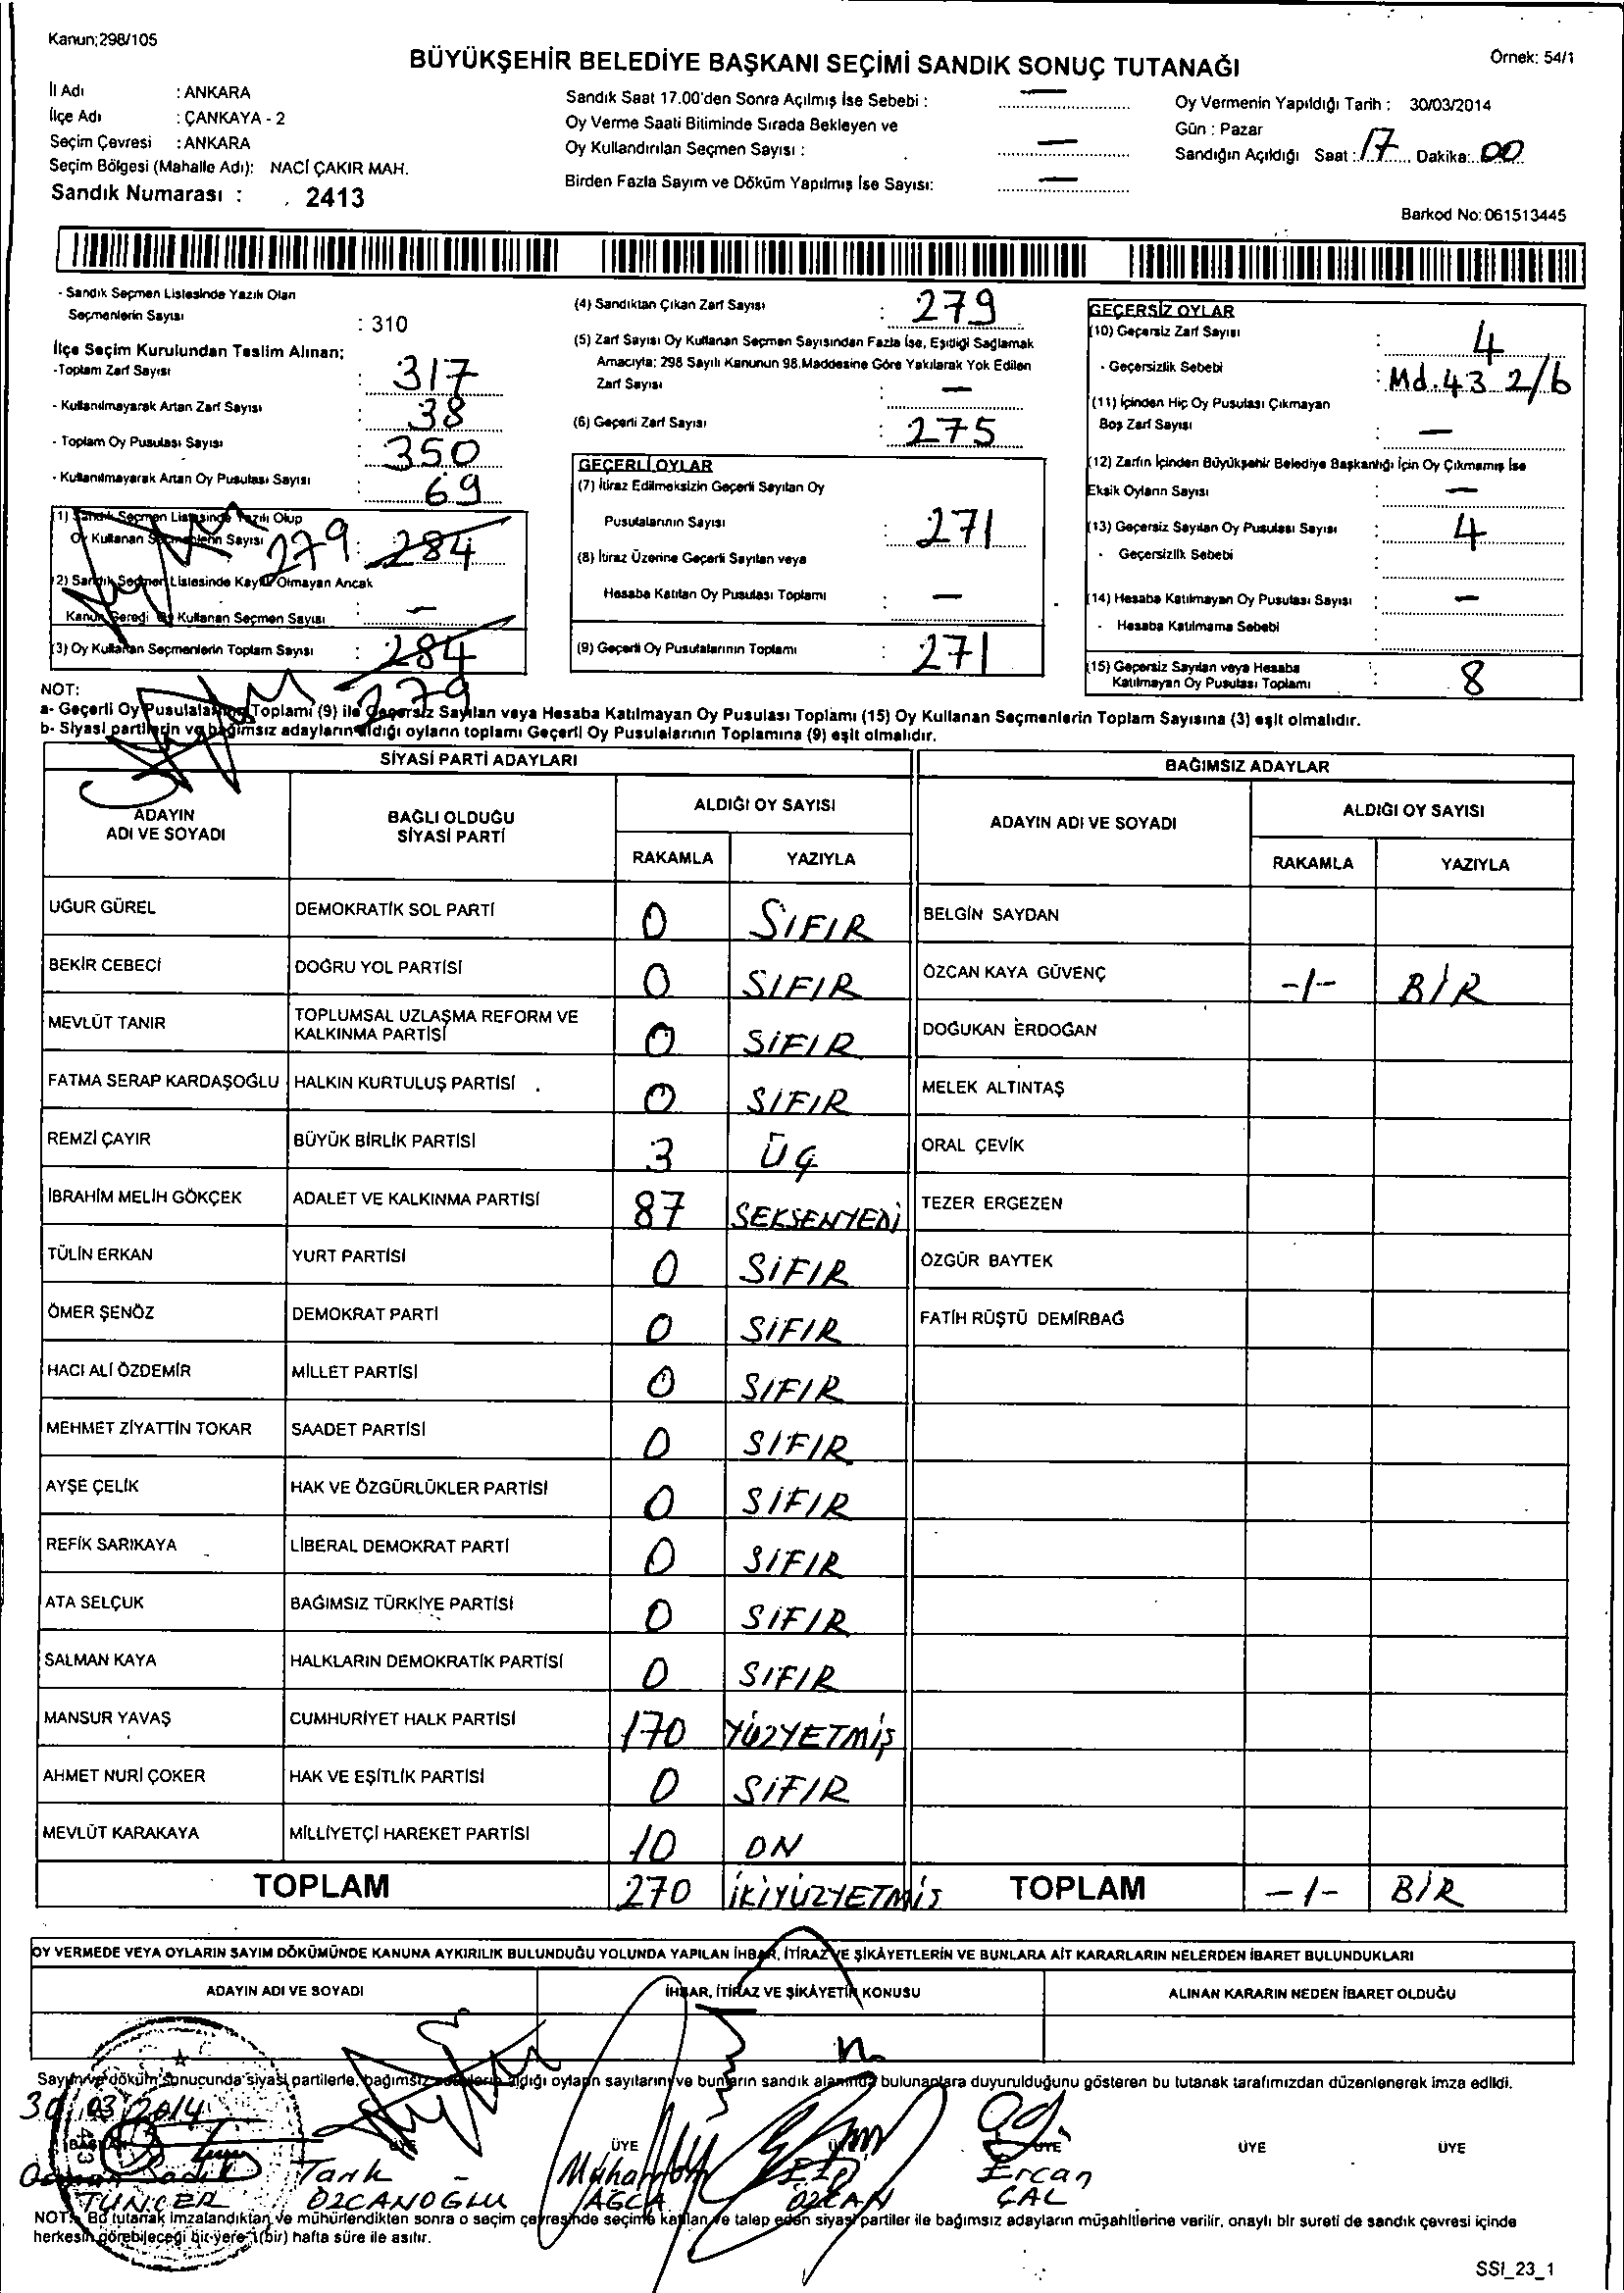 Kanun;298/105
BÜYÜKŞEHİR BELEDİYE BAŞKANI SEÇİMİ SANDIK SONUÇ TUTANAĞI
Örnek: 54/1
İl Adı : ANKARA
İlçe Adı : ÇANKAYA - 2
Seçim Çevresi : ANKARA
Seçim Bölgesi (Mahalle Adı): NACİ ÇAKIR MAH.
Sandık Numarası : 2413
Sandık Saat 17.00'den Sonra Açılmış İse Sebebi : —
Oy Verme Saati Bitiminde Sırada Bekleyen ve
Oy Kullandırılan Seçmen Sayısı : —
Birden Fazla Sayım ve Döküm Yapılmış İse Sayısı: —
Oy Vermenin Yapıldığı Tarih : 30/03/2014
Gün : Pazar
Sandığın Açıldığı Saat : 17 Dakika: 00
Barkod No: 061513445
- Sandık Seçmen Listesinde Yazılı Olan
Seçmenlerin Sayısı : 310
İlçe Seçim Kurulundan Teslim Alınan;
-Toplam Zarf Sayısı : 317
- Kullanılmayarak Artan Zarf Sayısı : 38
- Toplam Oy Pusulası Sayısı : 350
- Kullanılmayarak Artan Oy Pusulası Sayısı : 69
(1) Sandık Seçmen Listesinde Yazılı Olup
Oy Kullanan Seçmenlerin Sayısı 279 : 284
(2) Sandık Seçmen Listesinde Kayıtlı Olmayan Ancak
Kanun Gereği Oy Kullanan Seçmen Sayısı : —
(3) Oy Kullanan Seçmenlerin Toplam Sayısı : 284
279
(4) Sandıktan Çıkan Zarf Sayısı : 279
(5) Zarf Sayısı Oy Kullanan Seçmen Sayısından Fazla İse, Eşitliği Sağlamak
Amacıyla; 298 Sayılı Kanunun 98.Maddesine Göre Yakılarak Yok Edilen
Zarf Sayısı : —
(6) Geçerli Zarf Sayısı : 275
GEÇERLİ OYLAR
(7) İtiraz Edilmeksizin Geçerli Sayılan Oy
Pusulalarının Sayısı : 271
(8) İtiraz Üzerine Geçerli Sayılan veya
Hesaba Katılan Oy Pusulası Toplamı : —
(9) Geçerli Oy Pusulalarının Toplamı : 271
GEÇERSİZ OYLAR
(10) Geçersiz Zarf Sayısı : 4
- Geçersizlik Sebebi : Md.43 2/b
(11) İçinden Hiç Oy Pusulası Çıkmayan
Boş Zarf Sayısı : —
(12) Zarfın İçinden Büyükşehir Belediye Başkanlığı İçin Oy Çıkmamış İse
Eksik Oyların Sayısı : —
(13) Geçersiz Sayılan Oy Pusulası Sayısı : 4
- Geçersizlik Sebebi :
(14) Hesaba Katılmayan Oy Pusulası Sayısı : —
- Hesaba Katılmama Sebebi :
(15) Geçersiz Sayılan veya Hesaba
Katılmayan Oy Pusulası Toplamı : 8
NOT:
a- Geçerli Oy Pusulalarının Toplamı (9) ile Geçersiz Sayılan veya Hesaba Katılmayan Oy Pusulası Toplamı (15) Oy Kullanan Seçmenlerin Toplam Sayısına (3) eşit olmalıdır.
b- Siyasi partilerin ve bağımsız adayların aldığı oyların toplamı Geçerli Oy Pusulalarının Toplamına (9) eşit olmalıdır.
SİYASİ PARTİ ADAYLARI
BAĞIMSIZ ADAYLAR
ADAYIN ADI VE SOYADI
BAĞLI OLDUĞU SİYASİ PARTİ
ALDIĞI OY SAYISI
RAKAMLA YAZIYLA
ADAYIN ADI VE SOYADI
ALDIĞI OY SAYISI
RAKAMLA YAZIYLA
UĞUR GÜREL DEMOKRATİK SOL PARTİ 0 SIFIR BELGİN SAYDAN
BEKİR CEBECİ DOĞRU YOL PARTİSİ 0 SIFIR ÖZCAN KAYA GÜVENÇ -1- BİR
MEVLÜT TANIR TOPLUMSAL UZLAŞMA REFORM VE KALKINMA PARTİSİ 0 SİFIR DOĞUKAN ERDOĞAN
FATMA SERAP KARDAŞOĞLU HALKIN KURTULUŞ PARTİSİ 0 SIFIR MELEK ALTINTAŞ
REMZİ ÇAYIR BÜYÜK BİRLİK PARTİSİ 3 ÜÇ ORAL ÇEVİK
İBRAHİM MELİH GÖKÇEK ADALET VE KALKINMA PARTİSİ 87 SEKSENYEDİ TEZER ERGEZEN
TÜLİN ERKAN YURT PARTİSİ 0 SİFIR ÖZGÜR BAYTEK
ÖMER ŞENÖZ DEMOKRAT PARTİ 0 SİFIR FATİH RÜŞTÜ DEMİRBAĞ
HACI ALİ ÖZDEMİR MİLLET PARTİSİ 0 SIFIR
MEHMET ZİYATTİN TOKAR SAADET PARTİSİ 0 SIFIR
AYŞE ÇELİK HAK VE ÖZGÜRLÜKLER PARTİSİ 0 SIFIR
REFİK SARIKAYA LİBERAL DEMOKRAT PARTİ 0 SIFIR
ATA SELÇUK BAĞIMSIZ TÜRKİYE PARTİSİ 0 SIFIR
SALMAN KAYA HALKLARIN DEMOKRATİK PARTİSİ 0 SIFIR
MANSUR YAVAŞ CUMHURİYET HALK PARTİSİ 170 YÜZYETMİŞ
AHMET NURİ ÇOKER HAK VE EŞİTLİK PARTİSİ 0 SİFIR
MEVLÜT KARAKAYA MİLLİYETÇİ HAREKET PARTİSİ 10 ON
TOPLAM 270 İKİYÜZYETMİŞ TOPLAM -1- BİR
OY VERMEDE VEYA OYLARIN SAYIM DÖKÜMÜNDE KANUNA AYKIRILIK BULUNDUĞU YOLUNDA YAPILAN İHBAR, İTİRAZ VE ŞİKÂYETLERİN VE BUNLARA AİT KARARLARIN NELERDEN İBARET BULUNDUKLARI
ADAYIN ADI VE SOYADI İHBAR, İTİRAZ VE ŞİKÂYETİN KONUSU ALINAN KARARIN NEDEN İBARET OLDUĞU
Sayım ve döküm sonucunda siyasi partilerle, bağımsız adayların aldığı oyların sayılarını ve bunların sandık alanında bulunanlara duyurulduğunu gösteren bu tutanak tarafımızdan düzenlenerek imza edildi.
30/03/2014
BAŞKAN ÜYE ÜYE ÜYE ÜYE ÜYE ÜYE
Tarık Elif Ercan
TUNÇER ÖZCANOĞLU AĞCA ÖZCAN ÇAL
NOT: Bu tutanak imzalandıktan ve mühürlendikten sonra o seçim çevresinde seçime katılan ve talep eden siyasi partiler ile bağımsız adayların müşahitlerine verilir, onaylı bir sureti de sandık çevresi içinde
herkesin görebileceği bir yere 1(bir) hafta süre ile asılır.
SSI_23_1